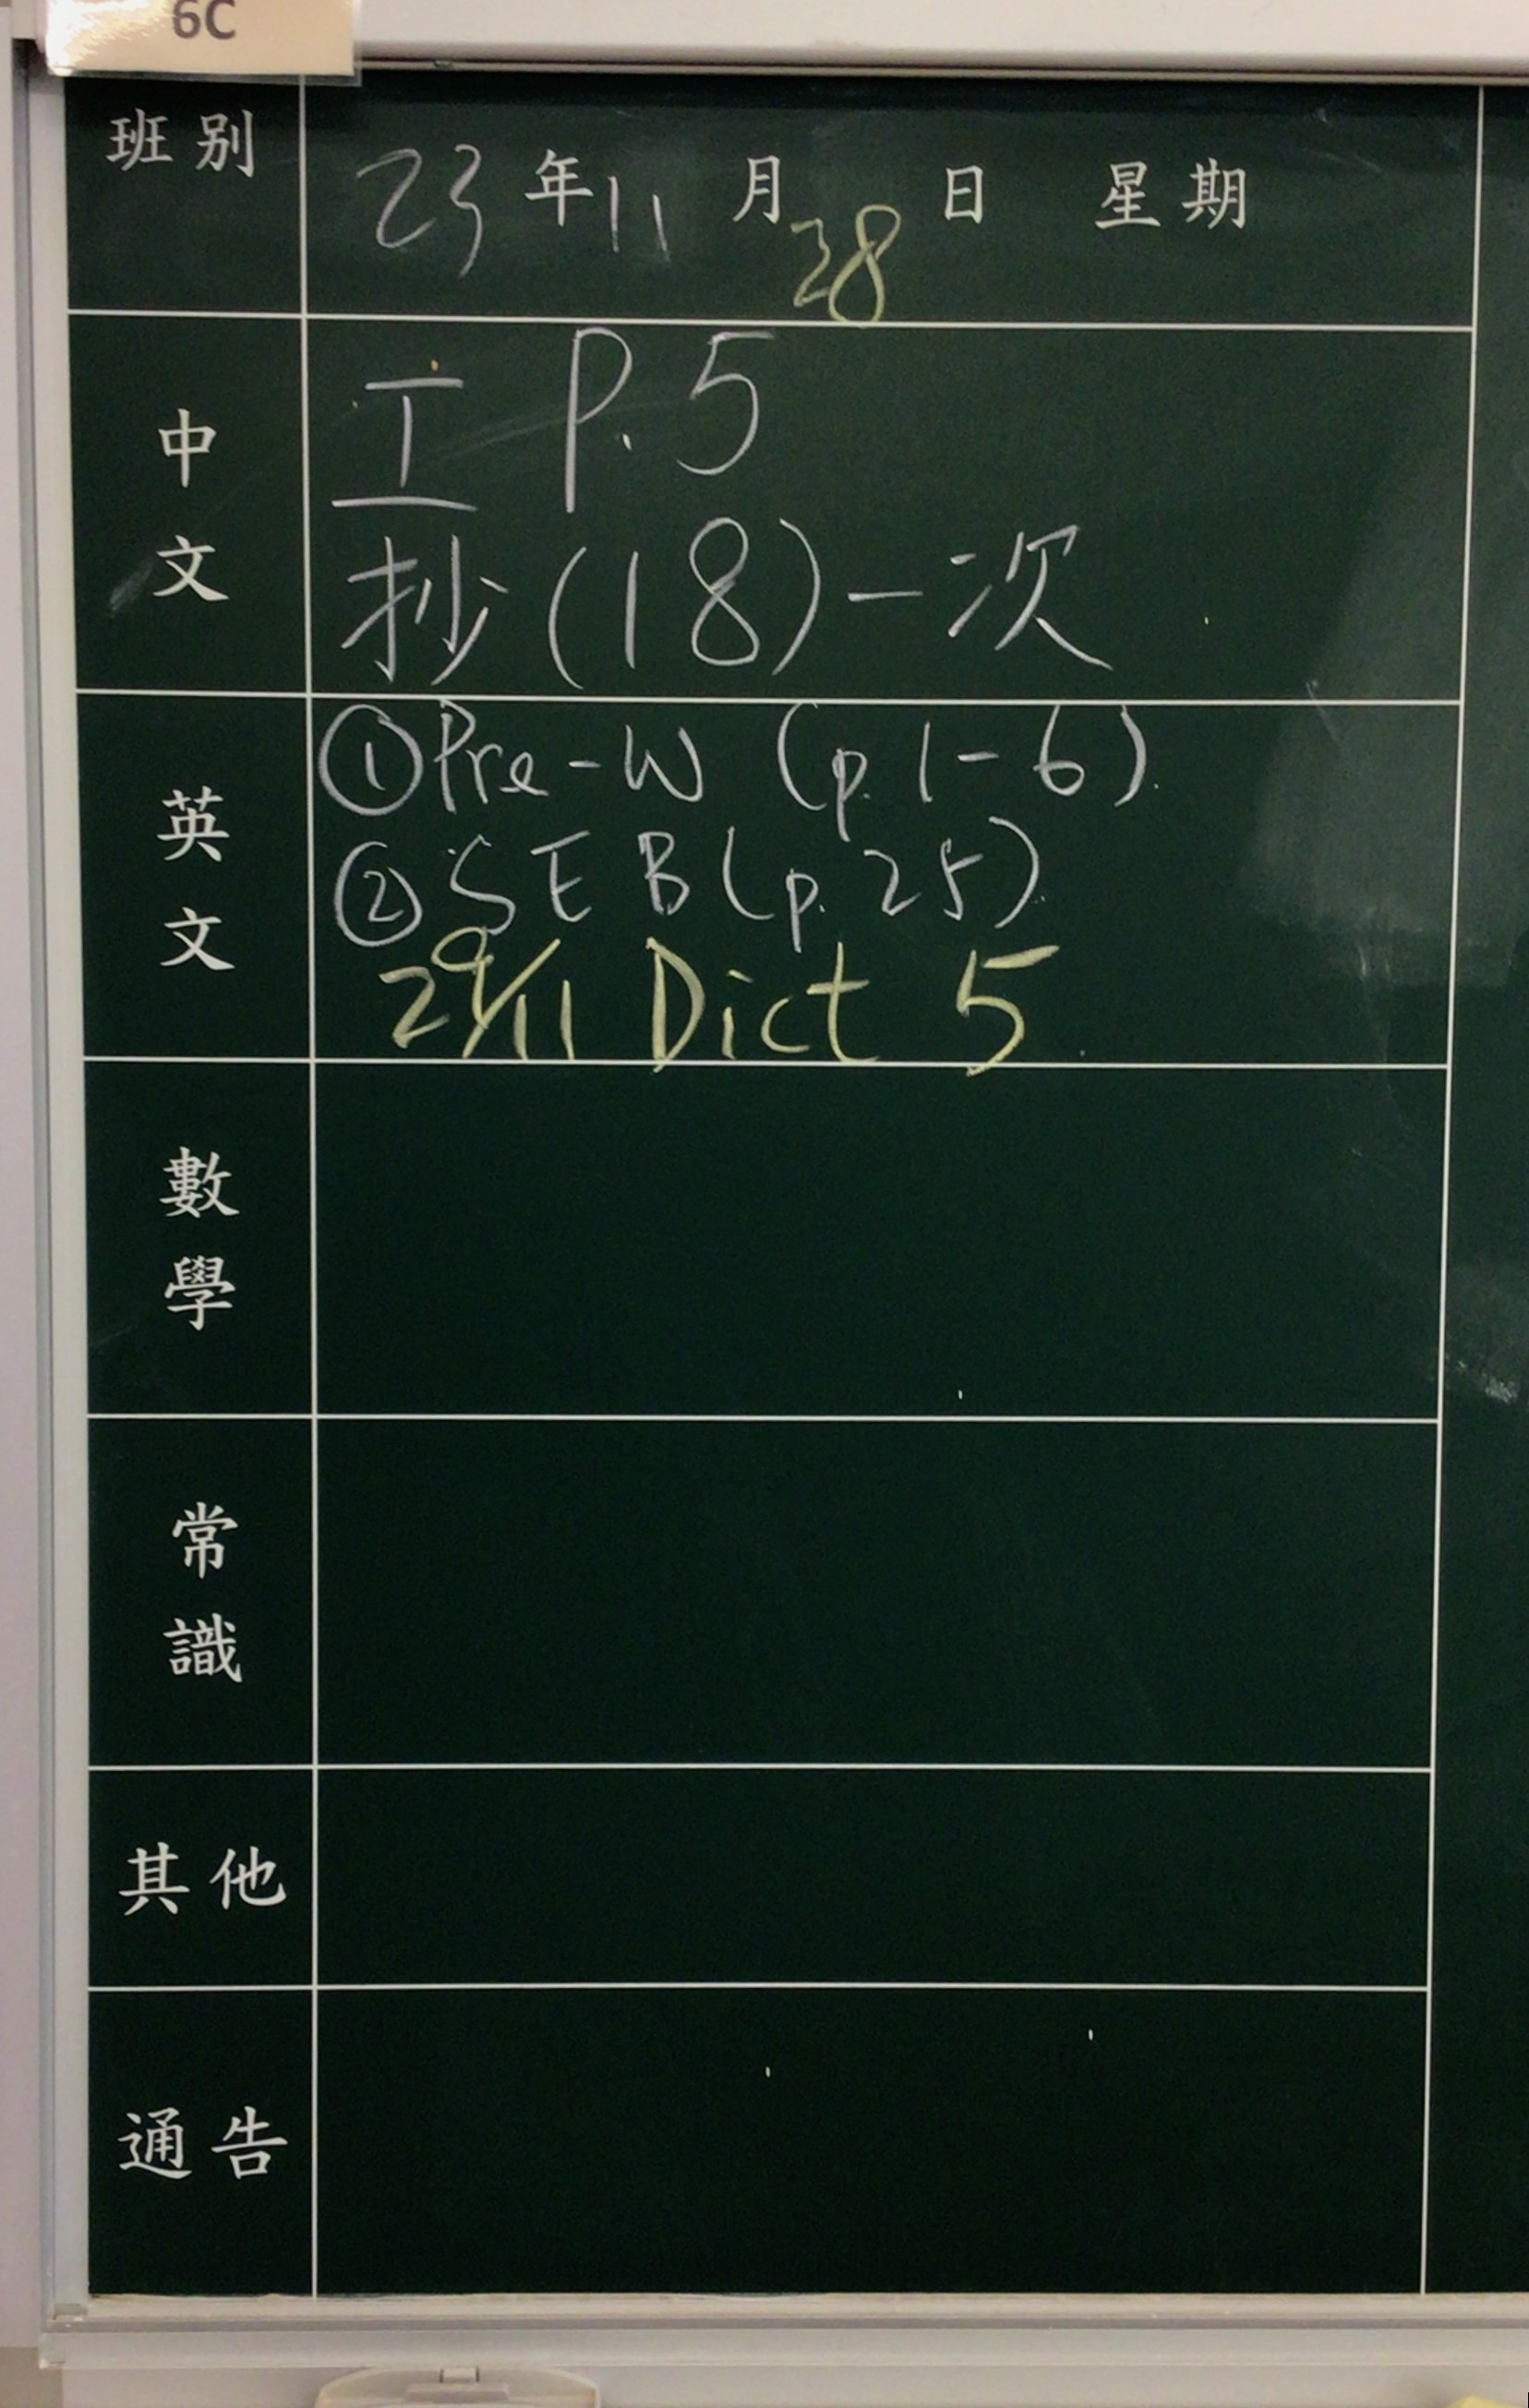 6C
班別 23年11月28日 星期
中文
工 P.5
抄(18)一次
英文
①Pre-W (p.1-6).
②SEB(p.25).
29/11 Dict 5
數學
常識
其他
通告